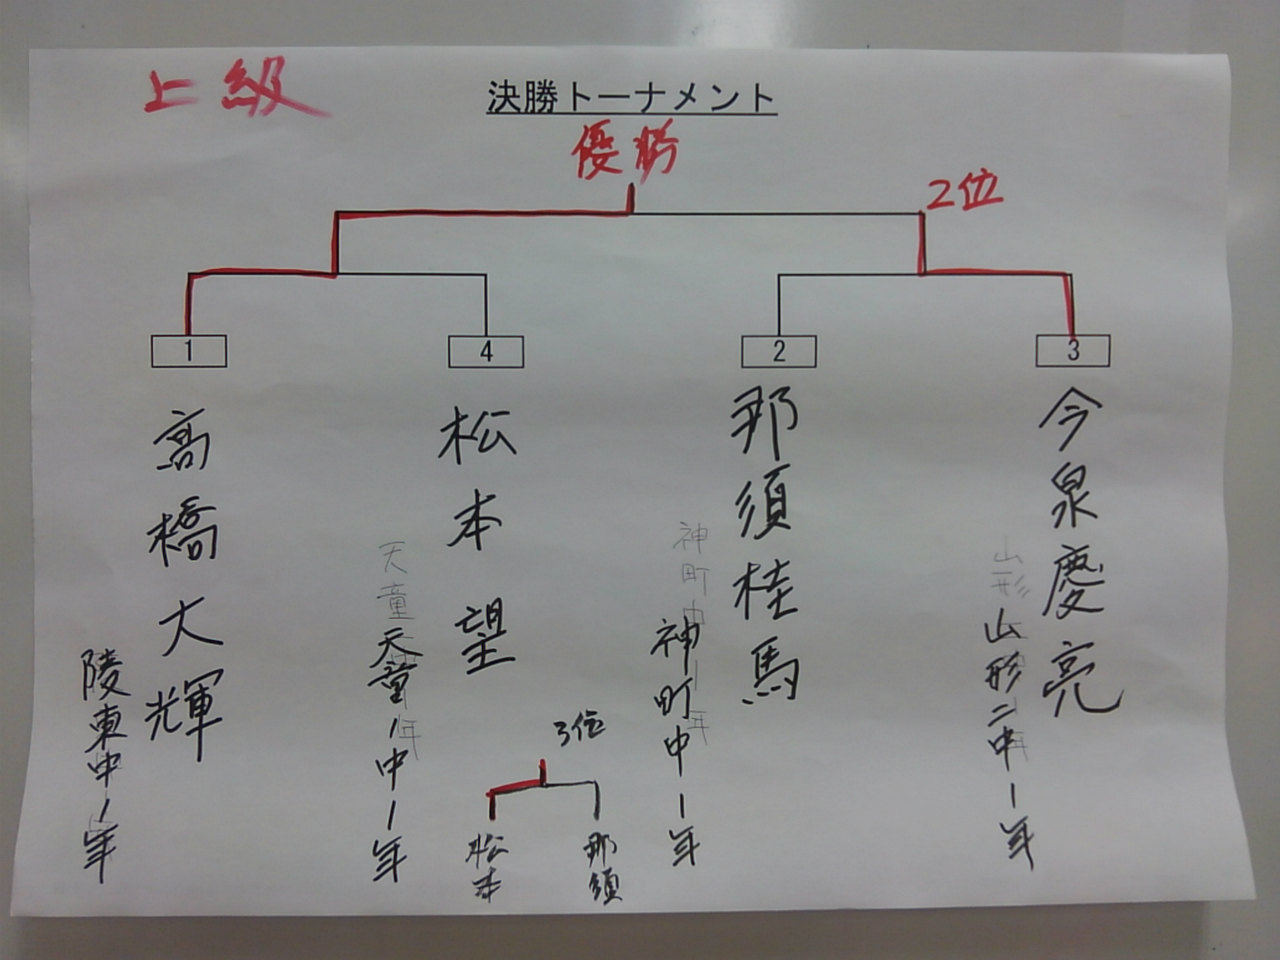 上級
決勝トーナメント
優勝
2位
1
4
2
3
高橋大輝
陵東中1年
松本望
天童一中1年
那須桂馬
神町中1年
今泉慶亮
山形二中1年
3位
松本
那須